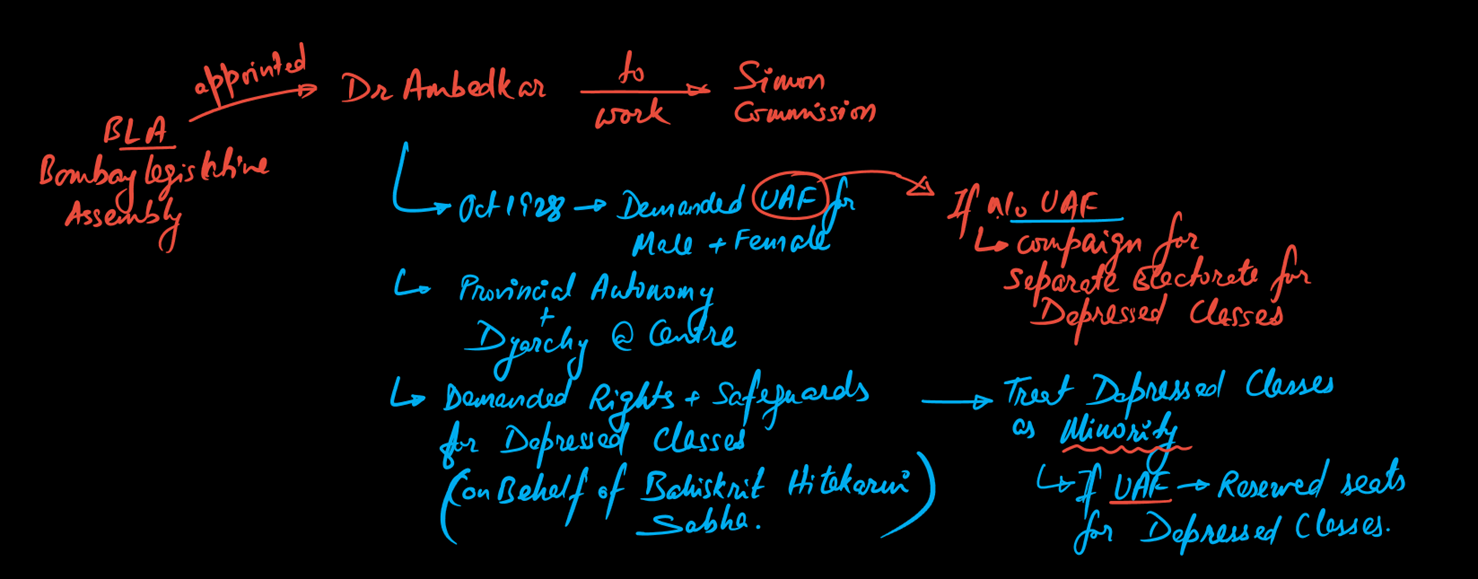 appointed
BLA
Bombay legislative
Assembly
Dr Ambedkar
to
work
Simon
Commission
Oct 1928 → Demanded UAF for
Male + Female
If no UAF
↳ compaign for
separate Electorate for
Depressed Classes
↳ Provincial Autonomy
+
Dyarchy @ Centre
↳ Demanded Rights + Safeguards
for Depressed Classes
(on Behalf of Bahiskrit Hitekarni
Sabha.)
→ Treat Depressed Classes
as Minority
↳ If UAF → Reserved seats
for Depressed Classes.